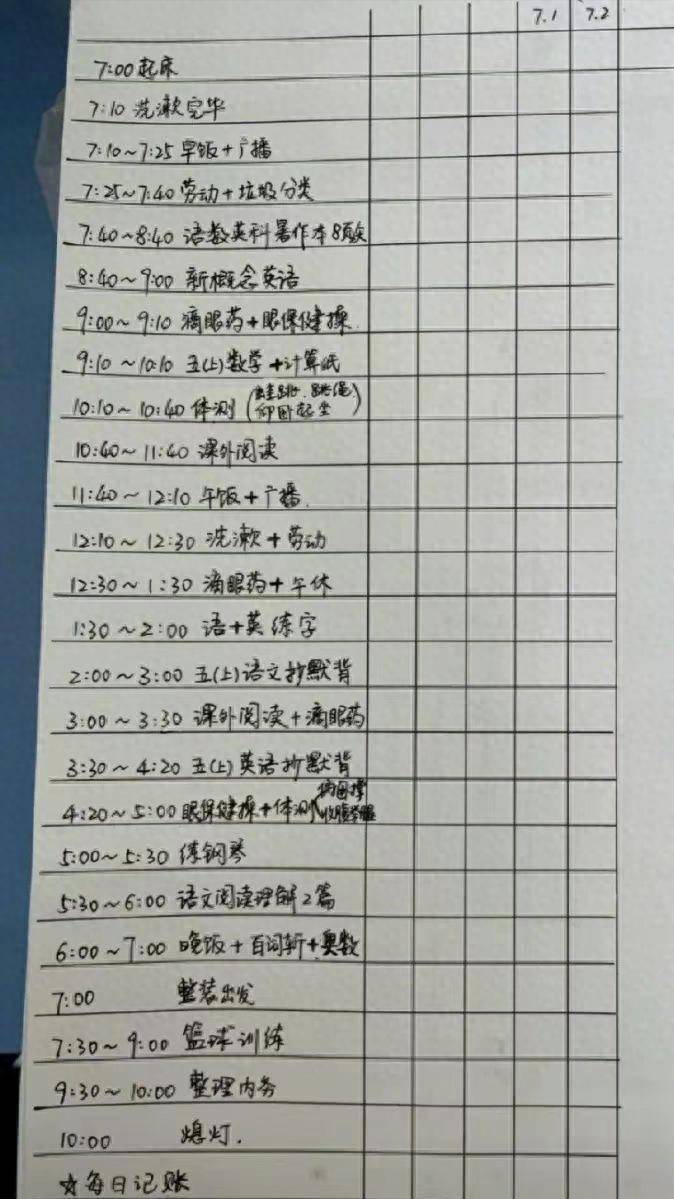 7.1 7.2
7:00 起床
7:10 洗漱完毕
7:10~7:25 早饭+广播
7:25~7:40 劳动+垃圾分类
7:40~8:40 语数英科暑作本8页
8:40~9:00 新概念英语
9:00~9:10 滴眼药+眼保健操.
9:10~10:10 五(上)数学+计算纸
10:10~10:40 体测(蛙跳.跳绳
仰卧起坐)
10:40~11:40 课外阅读
11:40~12:10 午饭+广播.
12:10~12:30 洗漱+劳动
12:30~1:30 滴眼药+午休
1:30~2:00 语+英练字
2:00~3:00 五(上)语文抄默背
3:00~3:30 课外阅读+滴眼药
3:30~4:20 五(上)英语抄默背
4:20~5:00 眼保健操+体测(俯卧撑
5:00~5:30 练钢琴
5:30~6:00 语文阅读理解2篇
6:00~7:00 晚饭+百词斩+奥数
7:00 整装出发
7:30~9:00 篮球训练
9:30~10:00 整理内务
10:00 熄灯.
☆每日记账